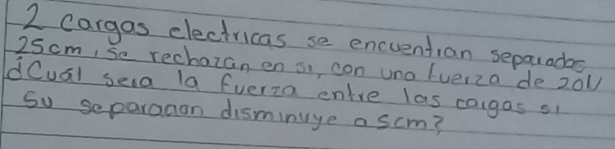 2 cargas electricas se encuentran separados
25cm, se rechazan en si, con una fuerza de 20N
¿Cuál sera la fuerza entre las cargas si
su separacion disminuye a 5cm?